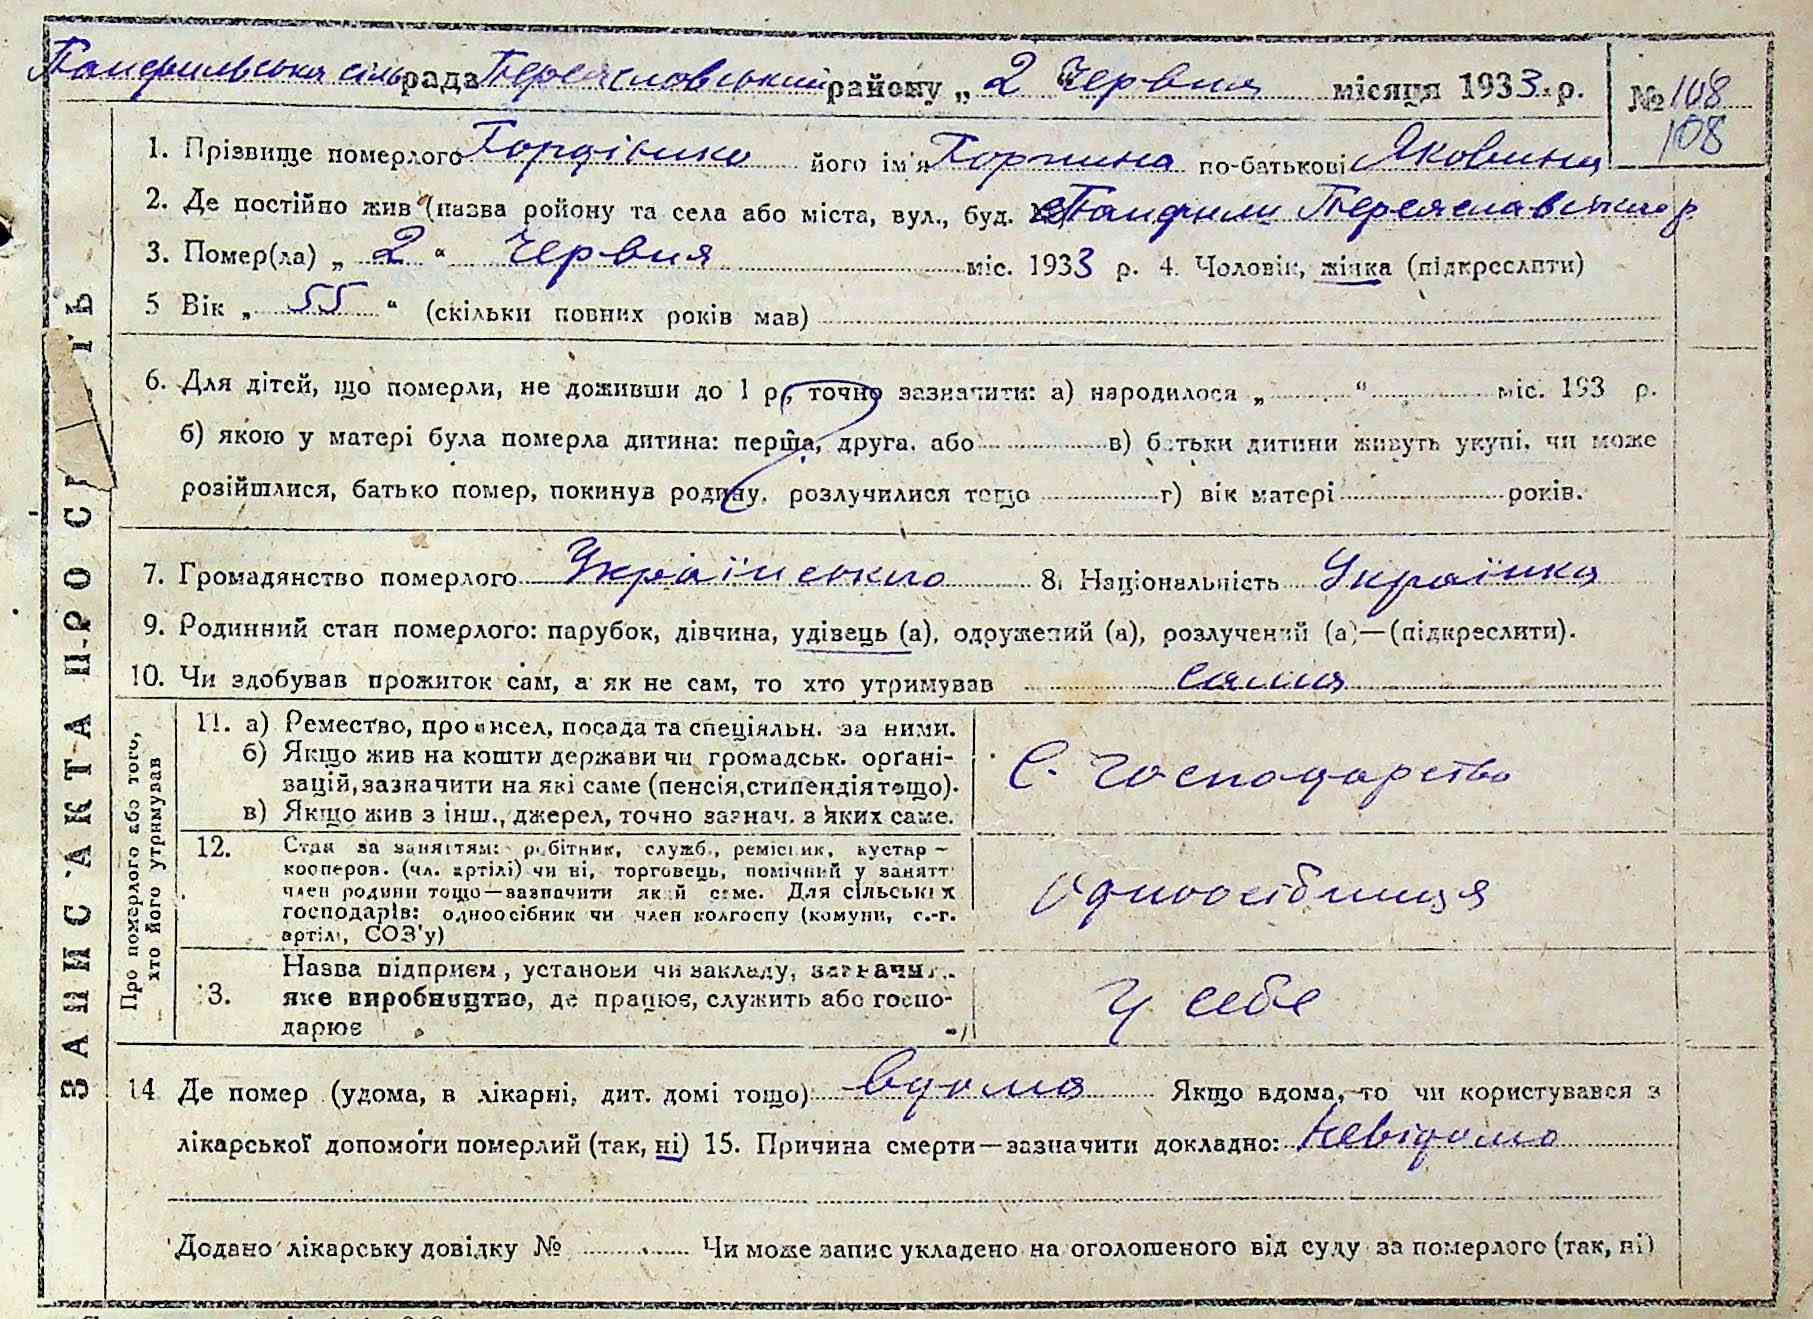 Памфильська сільрада Переясловський району „ 2 " Червня місяця 1933 р. № 108
108
1. Прізвище померлого його ім'я по-батькові Яковина
2. Де постійно жив (назва ройону та села або міста, вул., буд. Памфили Переяславського р
3. Помер(ла) „ 2 " Червня міс. 1933 р. 4. Чоловік, жінка (підкреслити)
5 Вік „ 55 " (скільки повних років мав)
6. Для дітей, що померли, не доживши до 1 р., точно зазначити: а) народилося „ " міс. 193 р.
б) якою у матері була померла дитина: перша, друга, або в) батьки дитини живуть укупі, чи може
розійшлися, батько помер, покинув родину, розлучилися тощо г) вік матері років.
7. Громадянство померлого Українського 8. Національність Українка
9. Родинний стан померлого: парубок, дівчина, удівець (а), одружений (а), розлучений (а)—(підкреслити).
10. Чи здобував прожиток сам, а як не сам, то хто утримував сама
ЗАПИС АКТА ПРО СМЕРТЬ
Про померлого або того, хто його утримував
11. а) Ремество, промисел, посада та спеціяльн. за ними.
б) Якщо жив на кошти держави чи громадськ. орґані-
зацій, зазначити на які саме (пенсія, стипендія тощо).
в) Якщо жив з інш., джерел, точно зазнач. з яких саме.
С. господарство
12. Стан за заняттям: робітник, служб., ремісник, кустар –
кооперов. (чл. артілі) чи ні, торговець, помічний у занятт
член родини тощо—зазначити який саме. Для сільських
господарів: одноосібник чи член колгоспу (комуни, с.-г.
артілі, СОЗ'у)
Одноосібниця
3. Назва підприєм., установи чи закладу, зазначит.
яке виробництво, де працює, служить або госпо-
дарює
У себе
14 Де помер (удома, в лікарні, дит. домі тощо) вдома Якщо вдома, то чи користувався з
лікарської допомоги померлий (так, ні) 15. Причина смерти—зазначити докладно: Невідомо
Додано лікарську довідку № Чи може запис укладено на оголошеного від суду за померлого (так, ні)